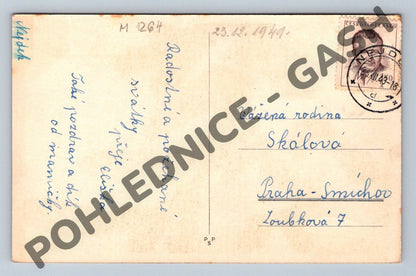 Nejdek
M 1264
23.12.1949.
Radostné a požehnané
svátky
přeje
Také pozdrav a dík
od maminky
NEJDEK
Vážená rodina
Skálová
Praha-Smíchov
Zoubková 7
POHLEDNICE - GASH